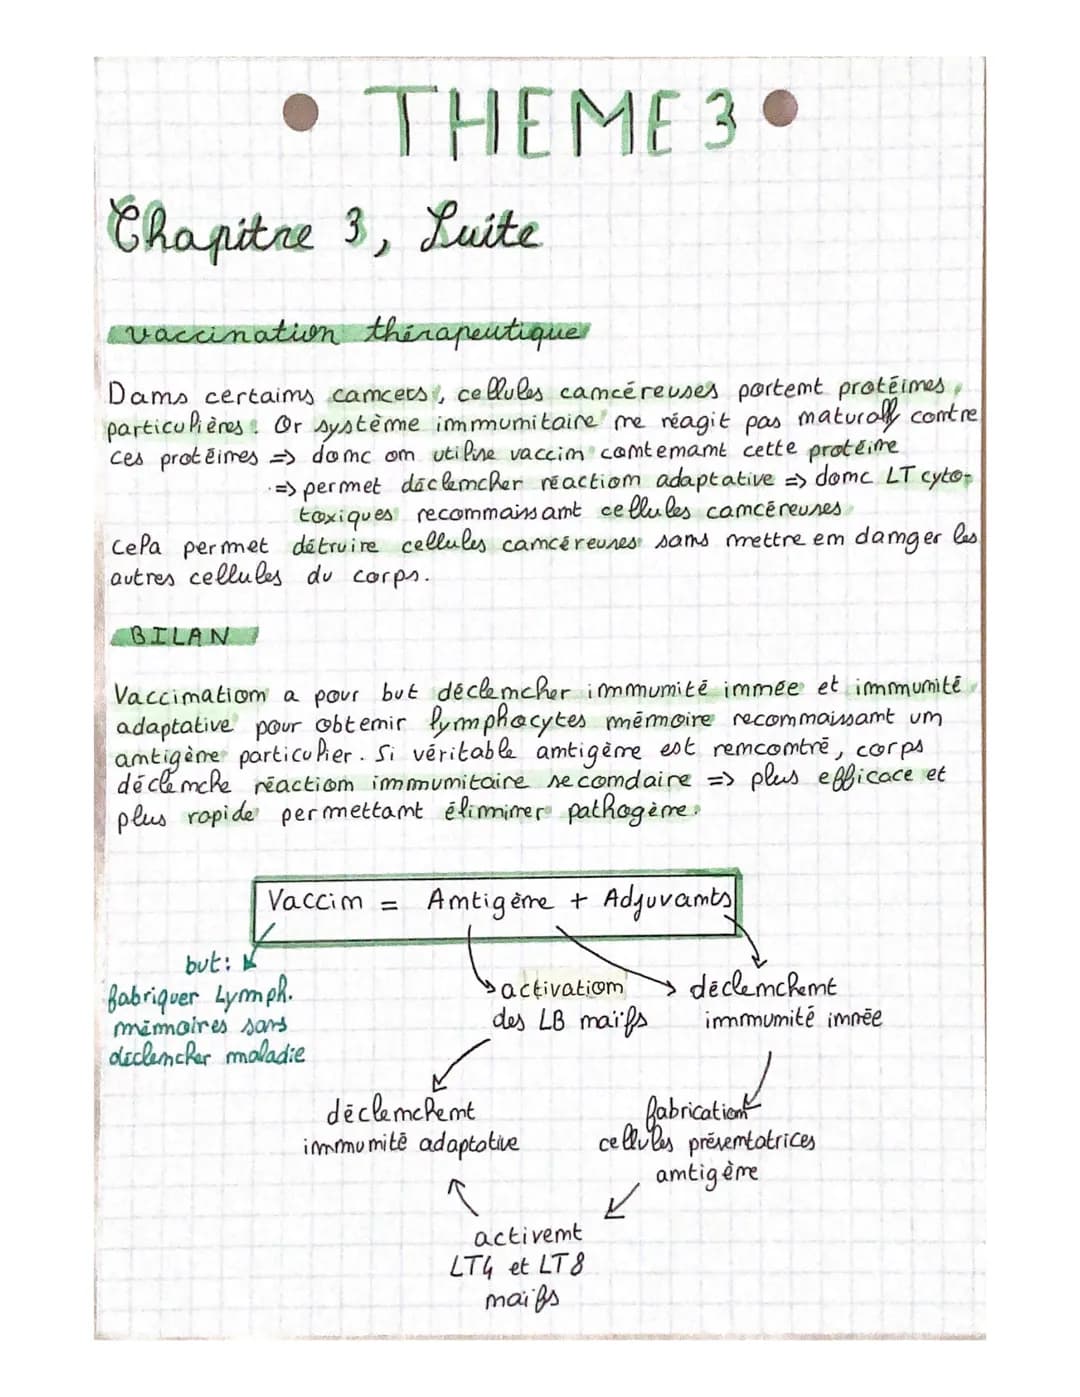 • THEME 3 •
Chapitre 3, Suite
vaccination thérapeutique
Dans certains cancers, cellules cancéreuses portent protéines
particulières. Or système immunitaire ne réagit pas naturall contre
ces protéines => donc on utilise vaccin contenant cette protéine
=> permet déclencher réaction adaptative => donc LT cyto-
toxiques reconnaissant cellules cancéreuses
Cela permet détruire cellules cancéreuses sans mettre en danger les
autres cellules du corps.
BILAN
Vaccination a pour but déclencher immunité innée et immunité
adaptative pour obtenir lymphocytes mémoire reconnaissant un
antigène particulier. Si véritable antigène est rencontré, corps
déclenche réaction immunitaire secondaire => plus efficace et
plus rapide permettant éliminer pathogène.
Vaccin = Antigène + Adjuvants
but:
fabriquer Lymph.
mémoires sans
déclencher maladie
activation
des LB naïfs
déclenchent
immunité innée
déclenchent
immunité adaptative
fabrication
cellules présentatrices
antigène
activent
LT4 et LT8
naïfs